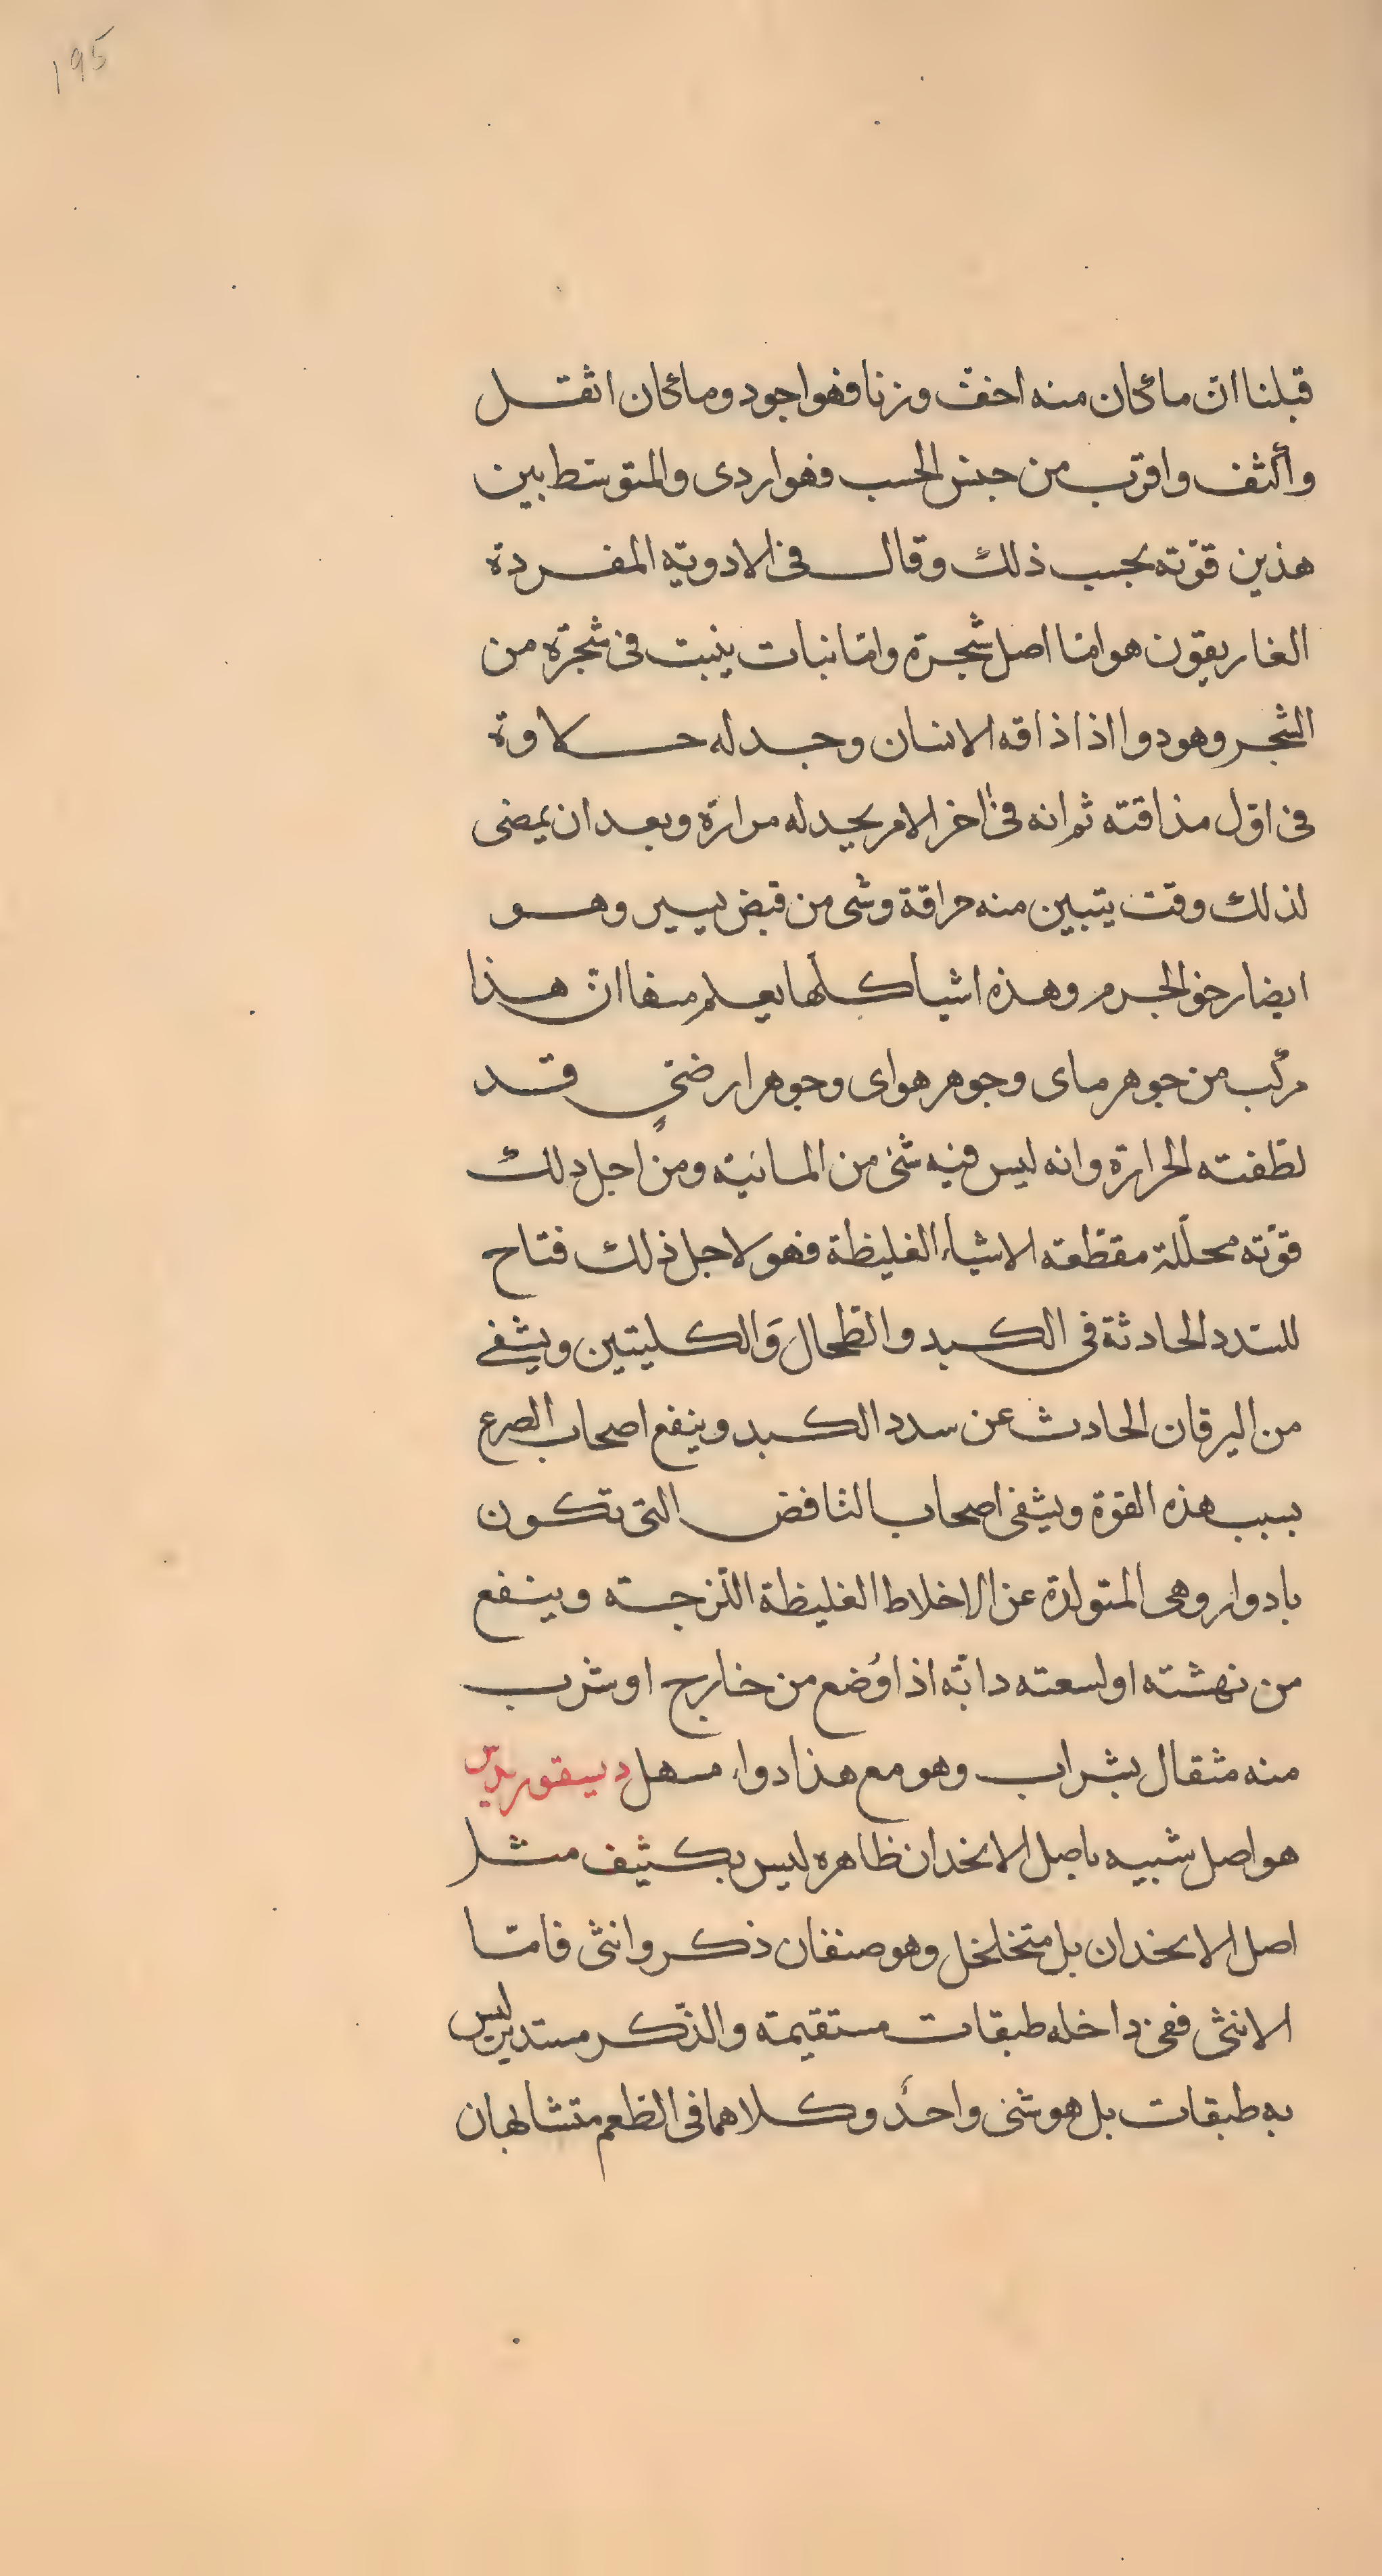 195
قبلنا انّ ما كان منه اخفّ وزنا فهو اجود وما كان اثقل
وأكثف واقرب من جنس الخسب فهو اردى والمتوسّط بين
هذين قوّته بحسب ذلك وقال فى الادوية المفردة
الغاريقون هو امّا اصل شجرة وامّا نبات ينبت فى شجرة من
الشجر وهو دوا اذا ذاقه الانسان وجد له حلاوة
فى اوّل مذاقته ثم انه فى اخر الامر يجد له مرارة وبعد ان يمضى
لذلك وقت يتبين منه حراقة وشى من قبض يسير وهو
ايضا رخو الجرم وهذه اشيا كلّها يعلم منها انّ هذا
مركّب من جوهر ماى وجوهر هواى وجوهر ارضىّ قد
لطّفته الحرارة وانه ليس فيه شى من المائية ومن اجل دلك
قوّته محلّلة مقطّعة الاشياء الغليظة فهو لاجل ذلك فتاح
للسّدد الحادثة فى الكبد والطّحال وَالكليتين ويشفى
من اليرقان الحادث عن سدد الكبد وينفع اصحاب الصرع
بسبب هذه القوّة ويشفى اصحاب النّافض التى تكون
بادوار وهى المتولدة عن الاخلاط الغليظة اللّزجة وينفع
من نهشته او لسعته دابّه اذا وُضع من خارج او شرب
منه مثقال بشراب وهو مع هذا دواء مسهل ديسقوريدس
هو اصل شبيه باصل الانجدان ظاهره ليس بكثيف مثل
اصل الانجدان بل متخلخل وهو صنفان ذكر وانثى فامّا
الانثى ففى داخله طبقات مستقيمة والذّكر مستدير ليس
به طبقات بل هو شى واحد وكلاهما فى الطّعم متشابهان